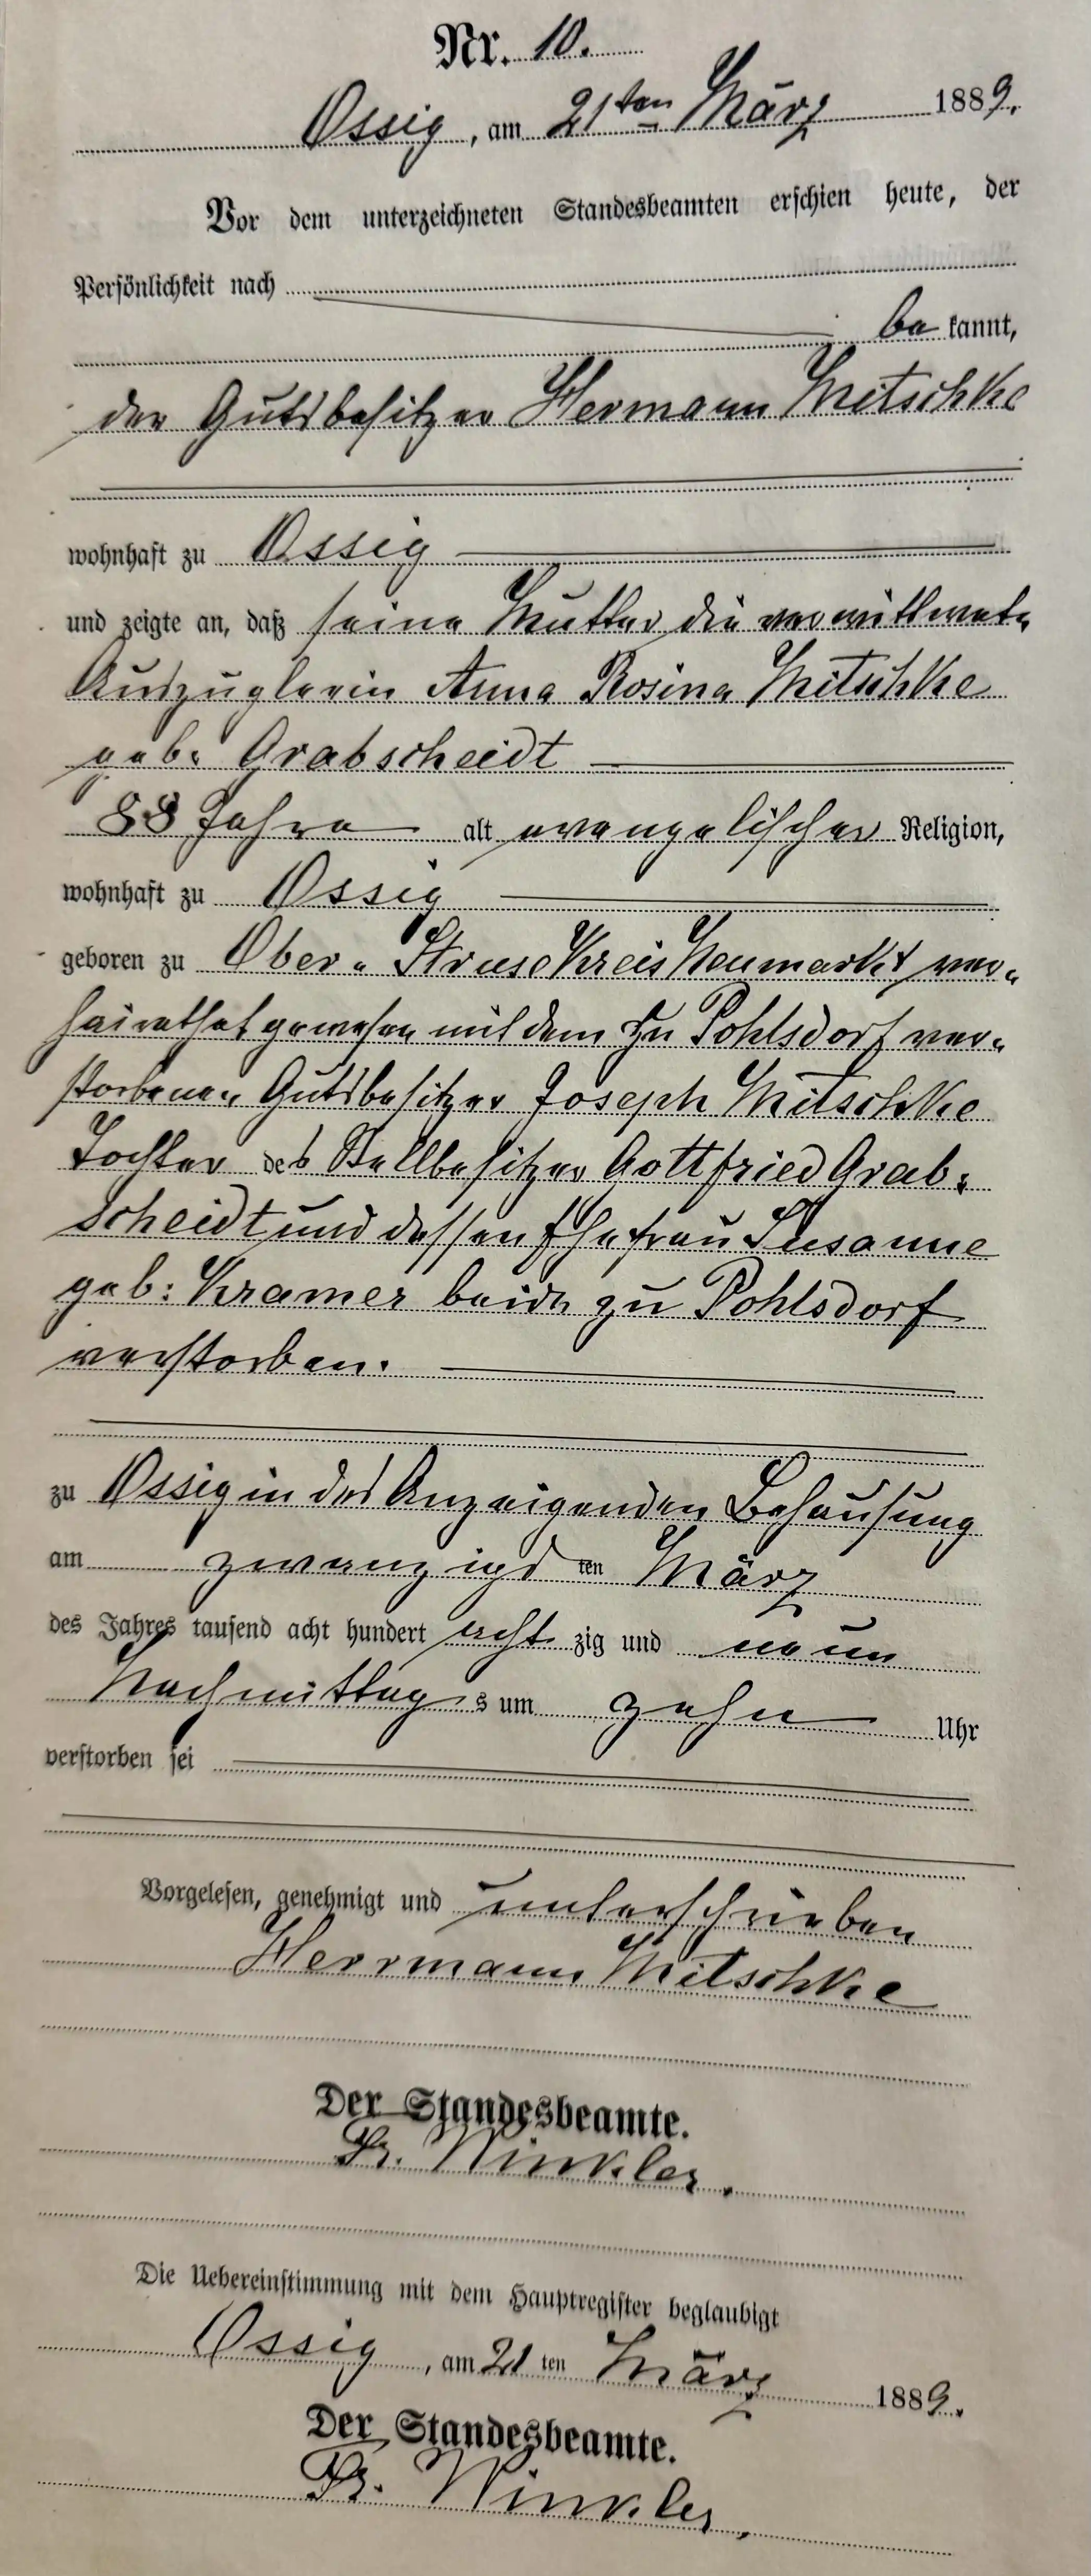 Nr. 10.
Ossig, am 21ten März 1889.
Vor dem unterzeichneten Standesbeamten erschien heute, der
Persönlichkeit nach
be kannt,
der Gutsbesitzer Hermann Mitschke
wohnhaft zu Ossig
und zeigte an, daß seine Mutter die verwittwete
Auszüglerin Anna Rosina Mitschke
geb. Grabscheidt
88 Jahre alt evangelischer Religion,
wohnhaft zu Ossig
geboren zu Ober-Struse Kreis Neumarkt ver-
heirathet gewesen mit dem zu Pohlsdorf ver-
storbenen Gutsbesitzer Joseph Mitschke
Tochter des Stellbesitzer Gottfried Grab-
scheidt und dessen Ehefrau Susanne
geb: Kramer beide zu Pohlsdorf
verstorben.
zu Ossig in des Anzeigenden Behausung
am zwanzigs ten März
des Jahres tausend acht hundert acht zig und neun
Nachmittag s um zehn Uhr
verstorben sei
Vorgelesen, genehmigt und unterschrieben
Herrmann Mitschke
Der Standesbeamte.
Winkler.
Die Uebereinstimmung mit dem Hauptregister beglaubigt
Ossig, am 21 ten März 1889.
Der Standesbeamte.
Winkler.